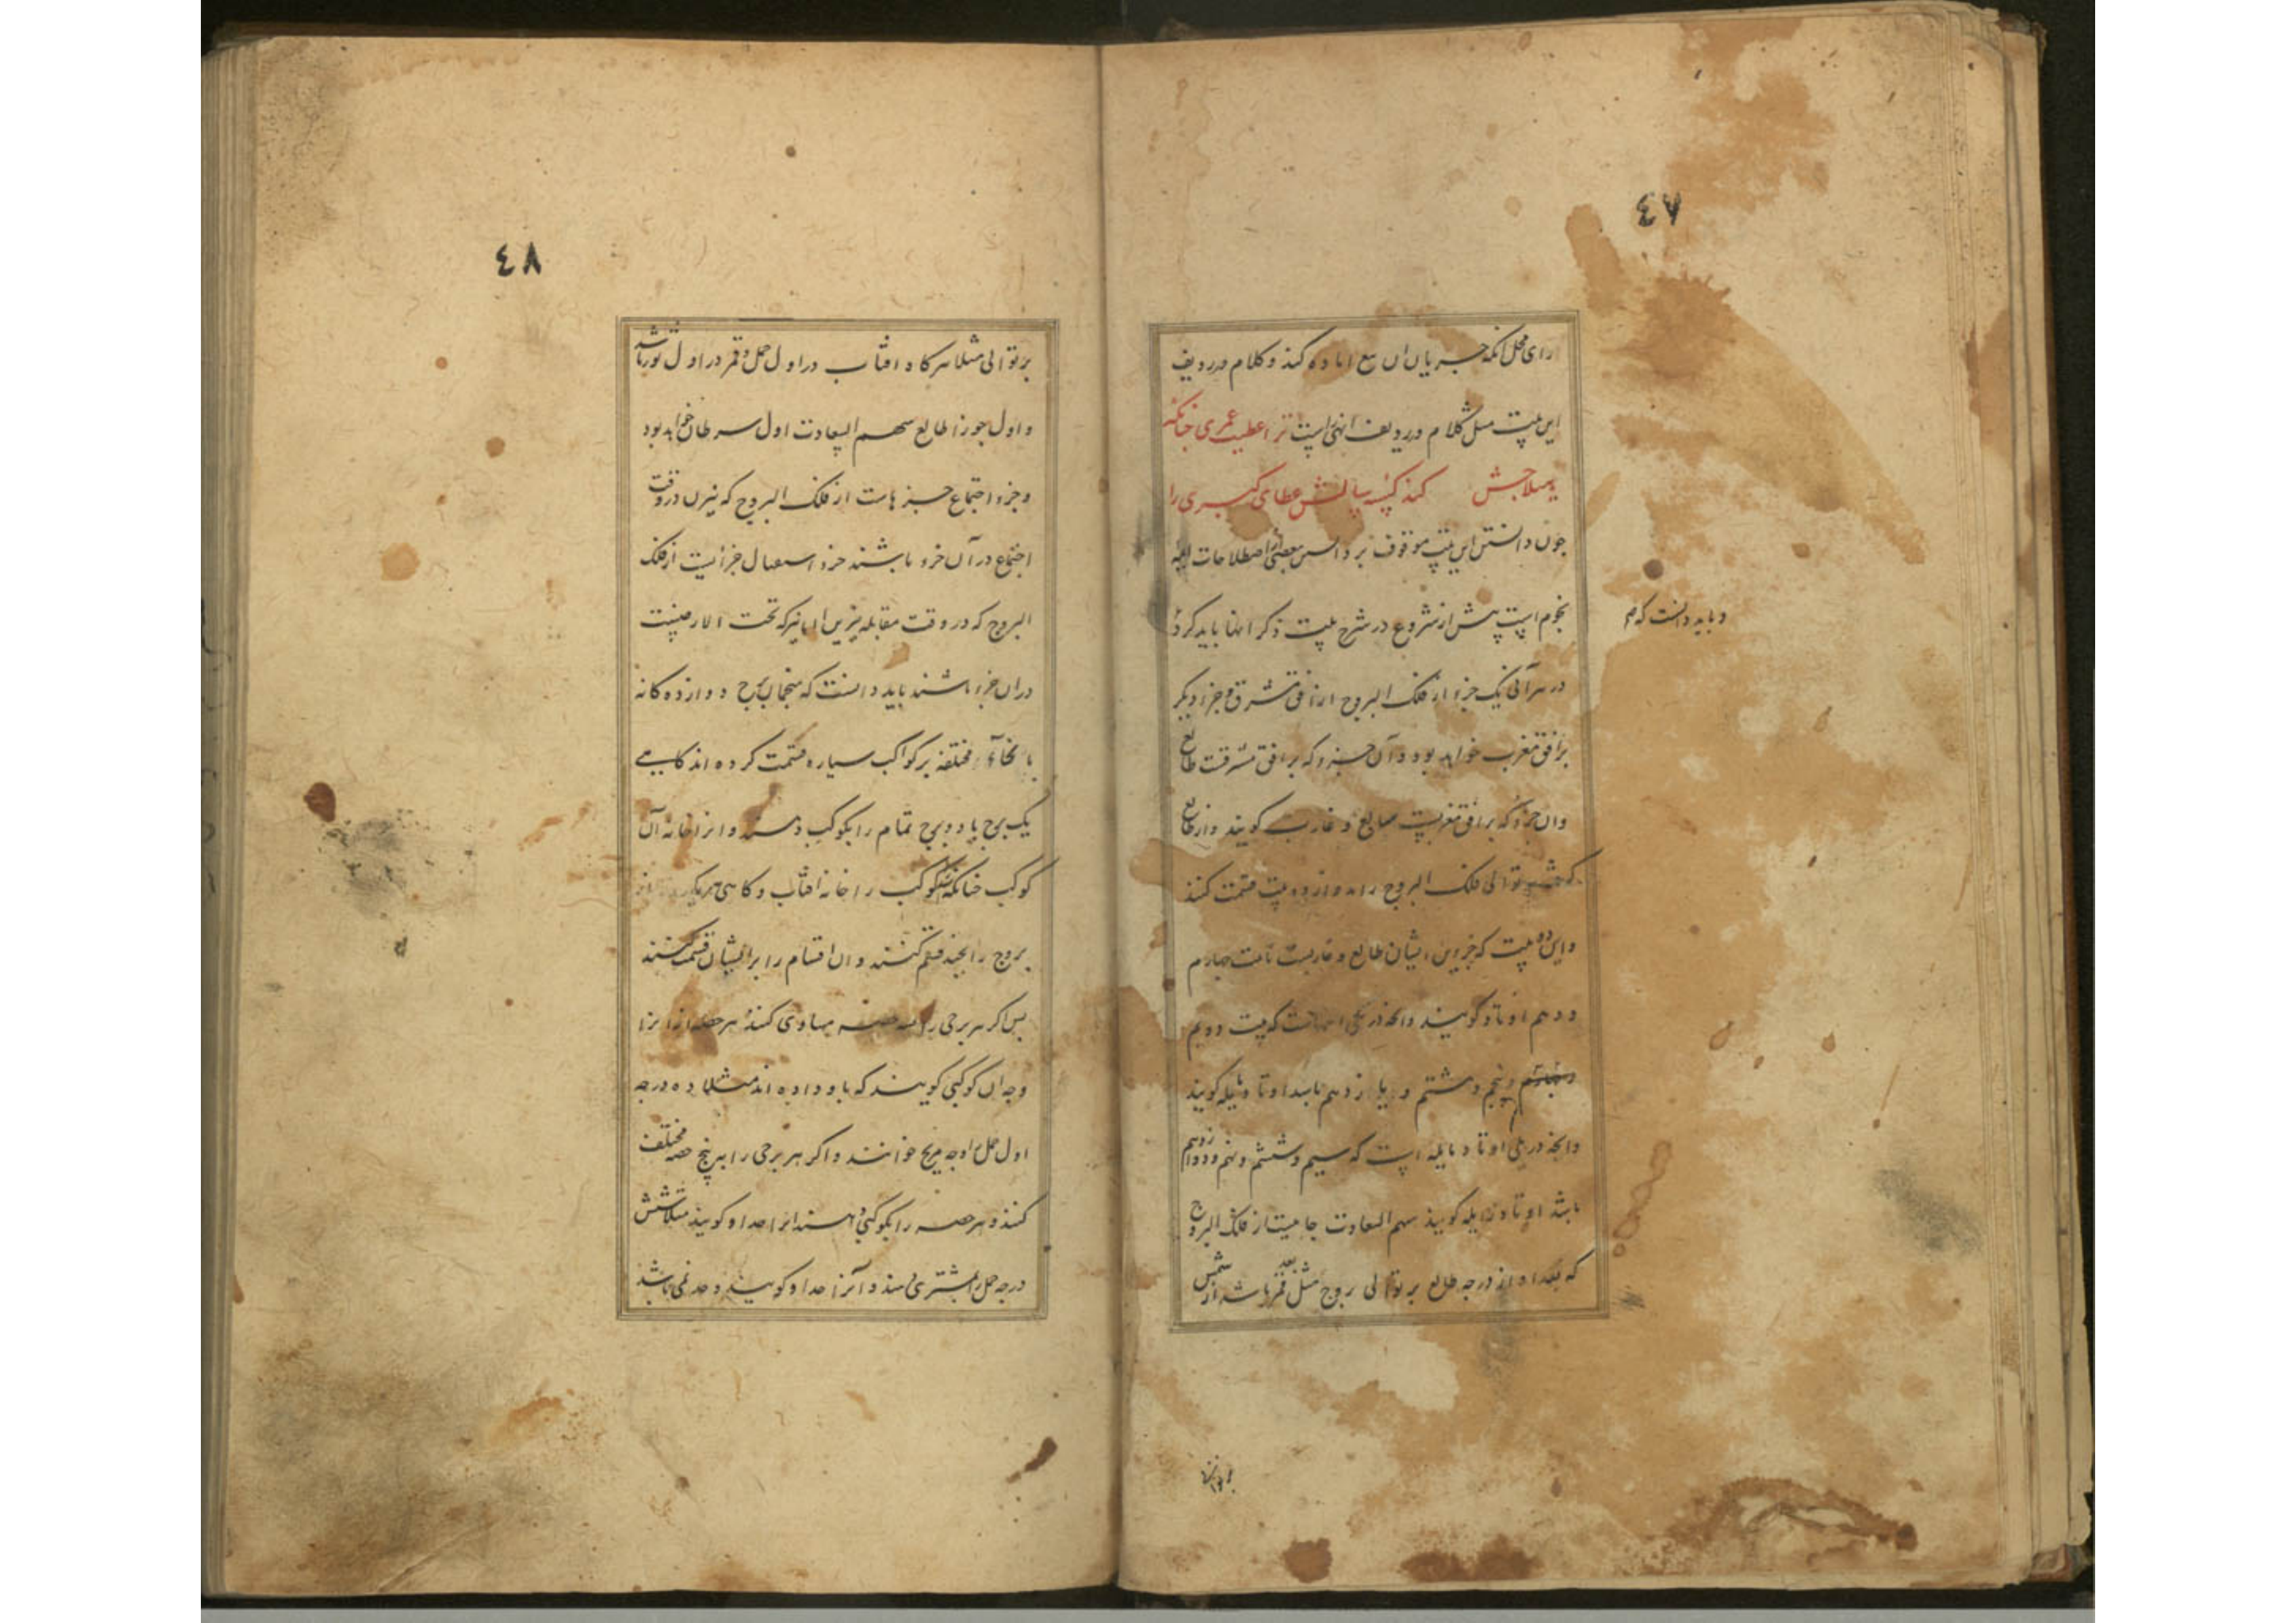 ٤٧
کند و کلام در ردیف
این بیت مثل کلام در ردیف است ترا عطیت عمری چنانکه
کند کبیسه سالش عطای کبری را
چون دانستن این بیت موقوف بر دانستن بعضی از اصطلاحات اهل
نجوم است پیش از شروع در شرح بیت ذکر انها باید کرد
و باید دانست که
در هر آنی یک جزء از فلک البروج از افق مشرق و جزء دیکر
بر افق مغرب خواهد بود و آن جزو که بر افق مشرقست طالع
وان جزو که بر افق مغربست و غارب کویند و از طالع
توالی فلک البروج را بدوازده بیت قسمت کنند
و این دو بیت که جزوین ایشان طالع و غاربست بابیت چهارم
و دهم اوتاد کویند که بیت دویم
و پنجم و هشتم و یازدهم باشد اوتاد مایله کویند
وانچه در پلی اوتاد مایله است که سیم و ششم و نهم و دوازدهم
باشد اوتاد زایله کویند سهم السعادت جاییست از فلک البروج
که بعد او از درجه طالع بر توالی بروج مثل بعد قمر باشد از شمس
بر توالی
٤٨
بر توالی مثلا هرکاه افتاب در اول حمل و قمر در اول ثور باشد
و اول جوزا طالع سهم السعادت اول سرطان خواهد بود
و جزو اجتماع جزویست از فلک البروج که نیرین در وقت
اجتماع در آن جزو باشند جزو استقبال جزئیست از فلک
البروج که در وقت مقابله نیرین که تحت الارضست
دران جزء باشند باید دانست که منجمان بروج دوازده کانه
با نحاء مختلفه بر کواکب سیاره قسمت کرده اند کاهی
یک برج یا دو برج تمام را بکوکب دهند و انرا خانه آن
کوکب خوانند را خانه افتاب و کاهی هر یک از
بروج را بچند قسم کنند و ان اقسام را بر ایشان قسمت کنند
پس اکر هر برجی را بسه حصه مساوی کنند هر حصه از انرا
وجه ان کوکبی کویند که باو داده اند مثلا ده درجه
اول حمل را وجه مریخ خوانند و اکر هر برجی را به پنج حصه مختلف
کنند و هر حصه را بکوکبی دهند انرا حد او کویند مثلا شش
درجه حمل را بمشتری دهند و آنرا حد او کویند و حد نمی باشد